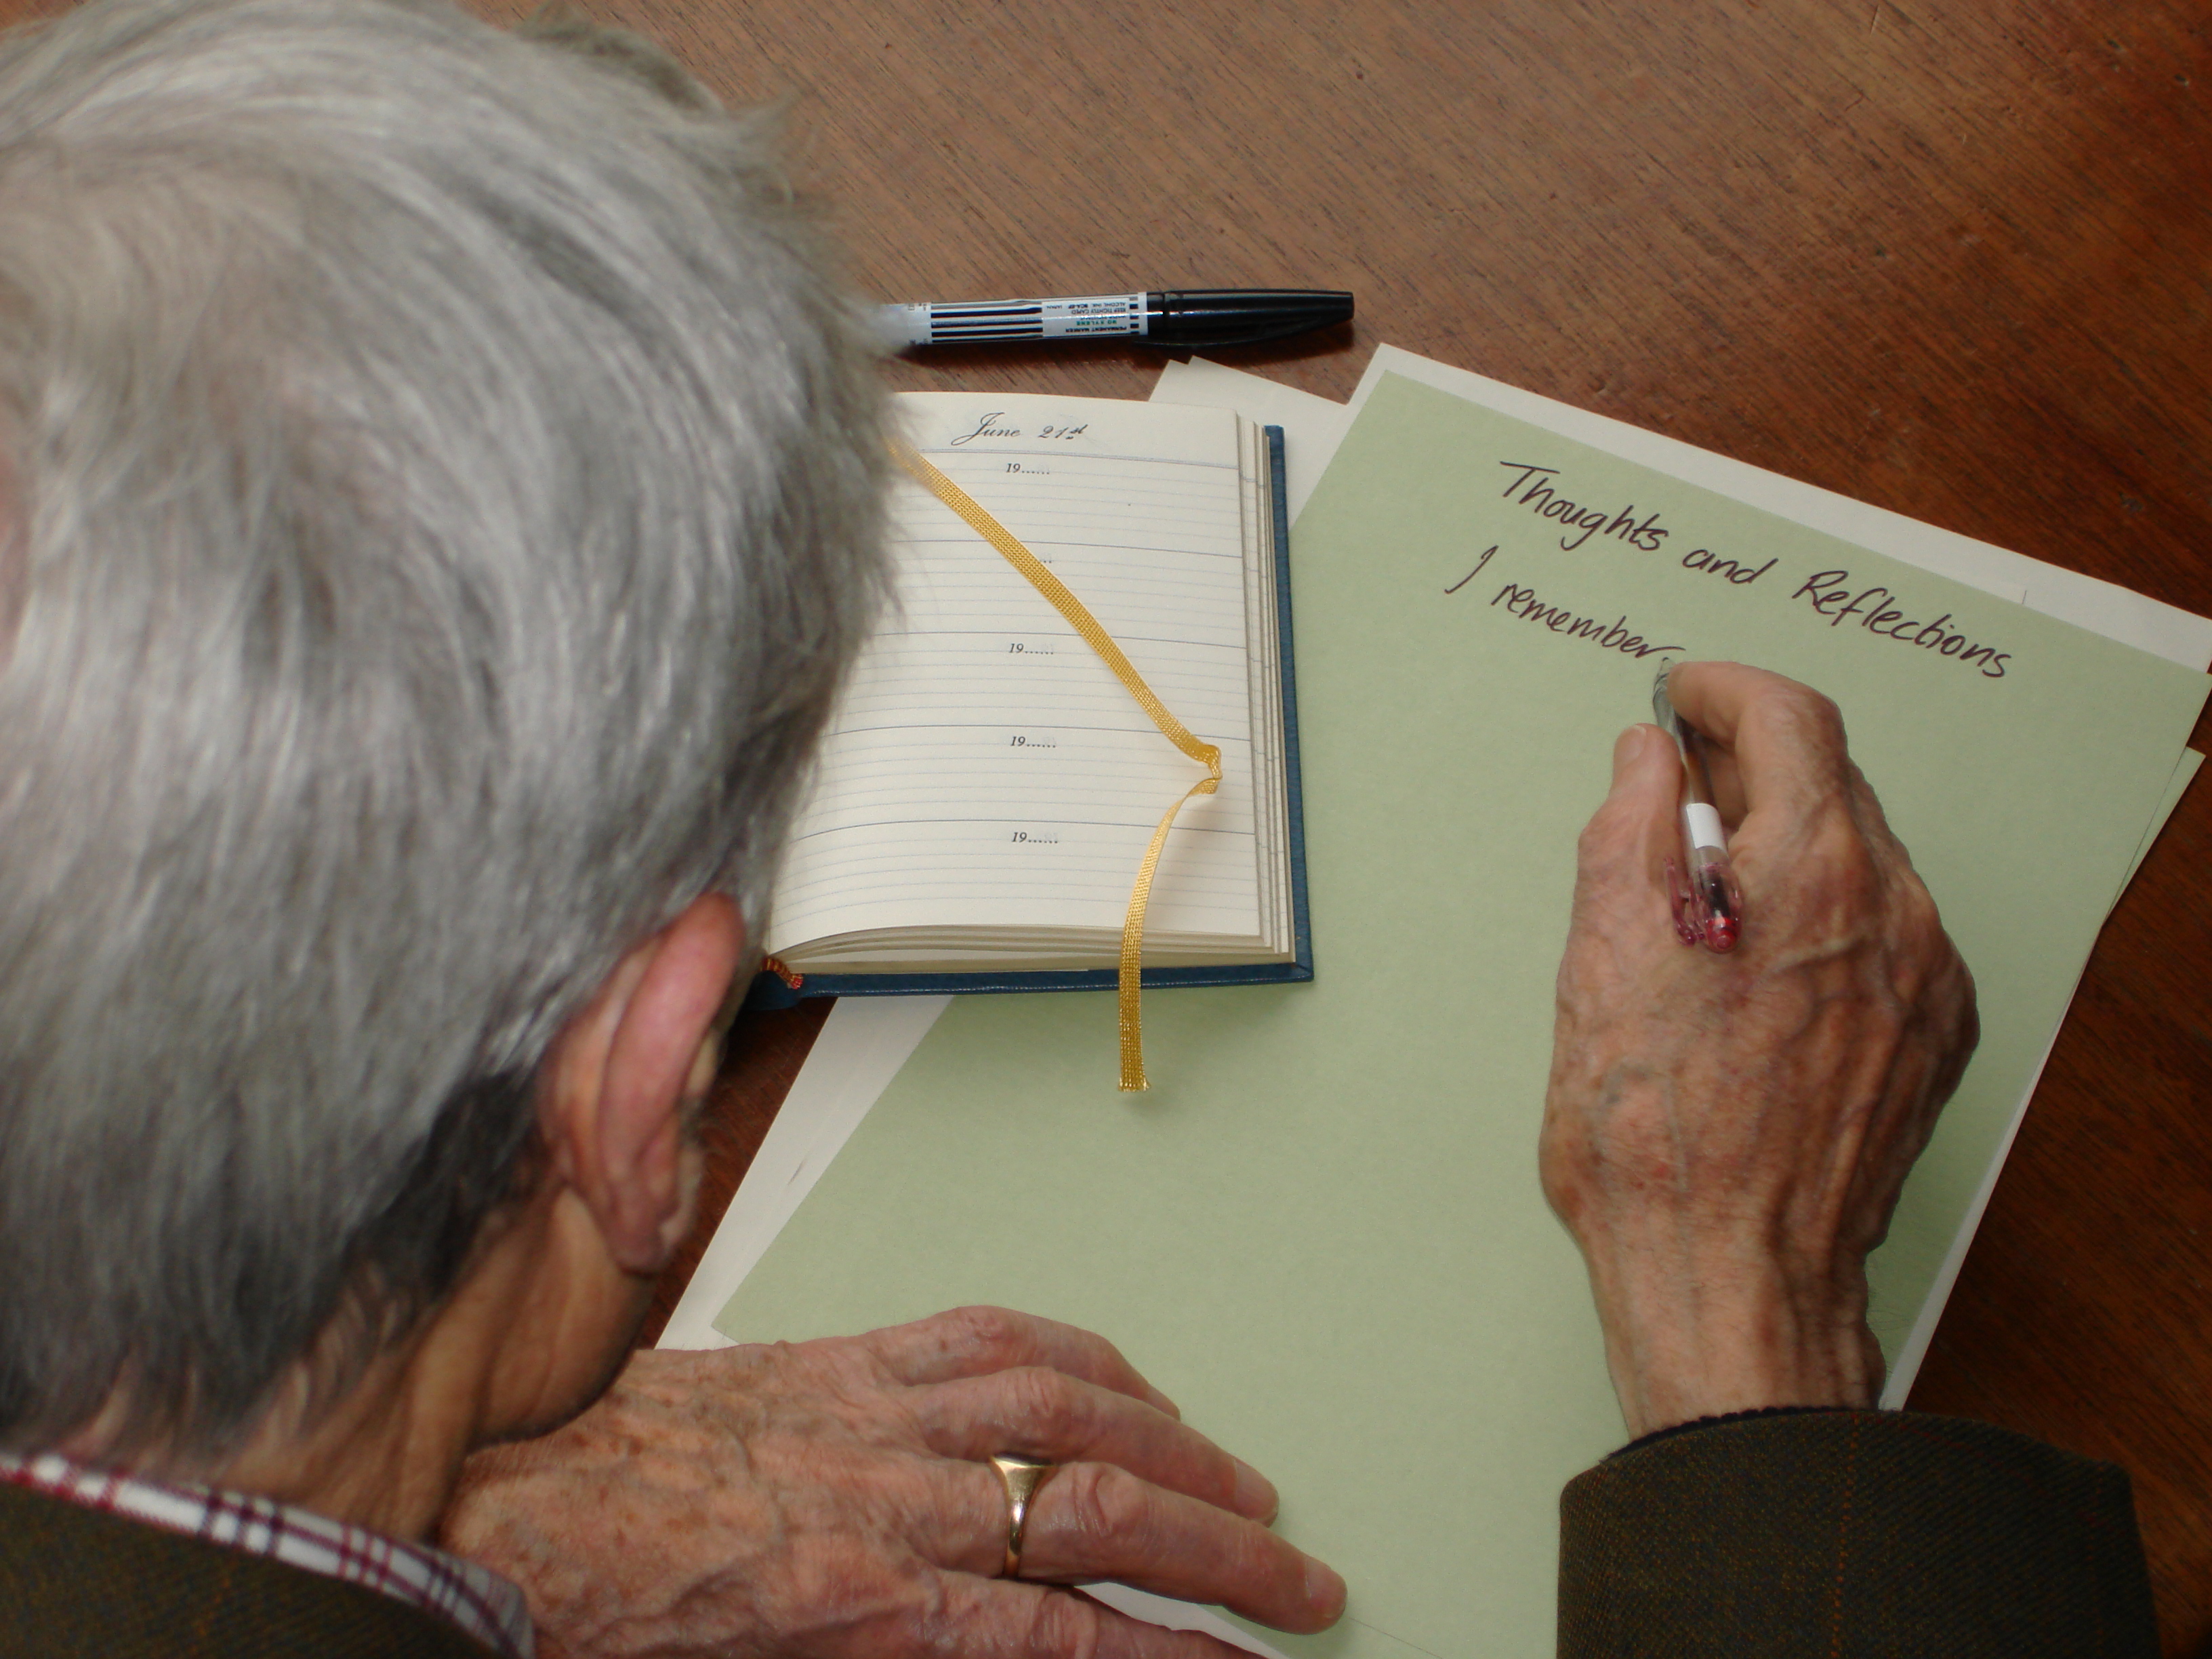 June 21st
19......
19......
19......
19......
Thoughts and Reflections
I remember
PERMANENT MARKER